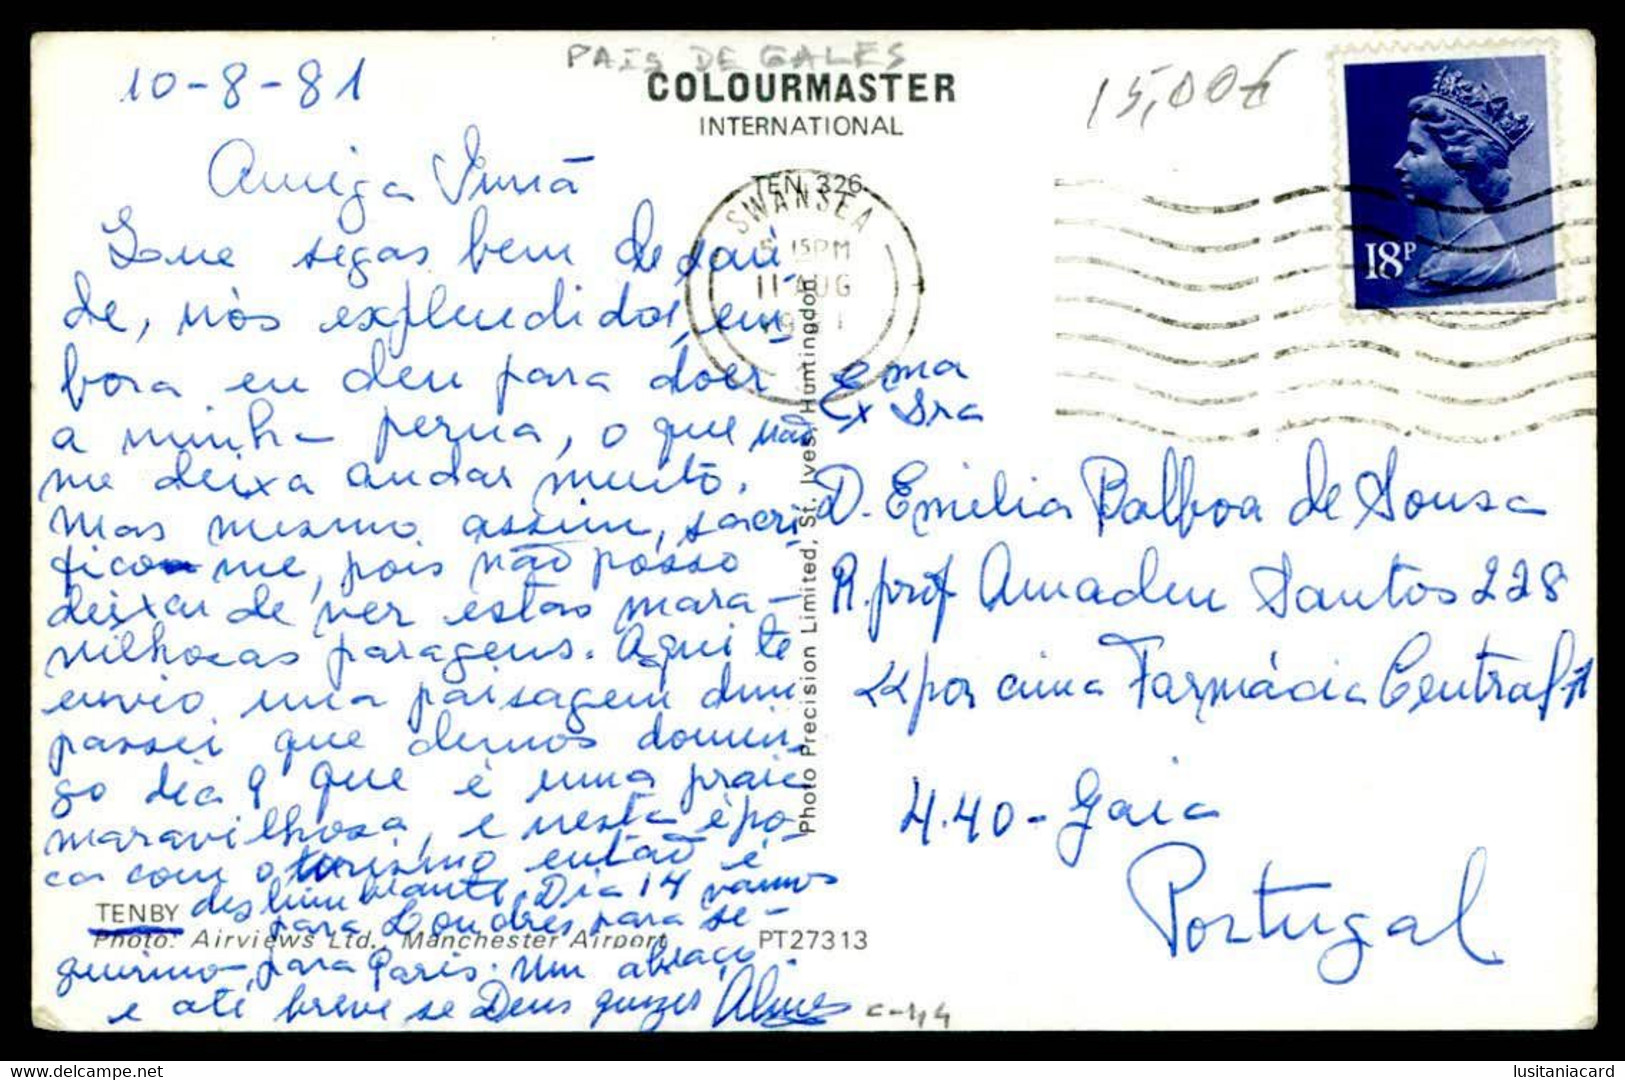 PAIS DE GALES
10-8-81
COLOURMASTER
INTERNATIONAL
15,00€
TEN 326
SWANSEA
15PM
11 AUG
18P
Amiga Irmã
Que segas bem de saú
de, nós explendidos, em
bora eu deu para doer
a minha perna, o que não
me deixa andar muito,
mas mesmo assim, sacri
fico me, pois não posso
deixar de ver estas mara-
vilhosas paragens. Aqui te
envio uma paisagem dum
passei que demos domin
go dia 9 que é uma praia
maravilhosa, e nesta épo-
ca com o turismo então é
deslumbrante. Dia 14 vamos
para Londres para se-
guirmo para Paris. Um abraço
e até breve se Deus quizer
Ema
Ex Sra
D. Emilia Balboa de Sousa
R. prof Amadeu Santos 228
por cima Farmácia Central
4.40 - Gaia
Portugal
TENBY
Photo: Airviews Ltd., Manchester Airport
PT27313
C-44
Photo Precision Limited, St. Ives, Huntingdon
lusitaniacard